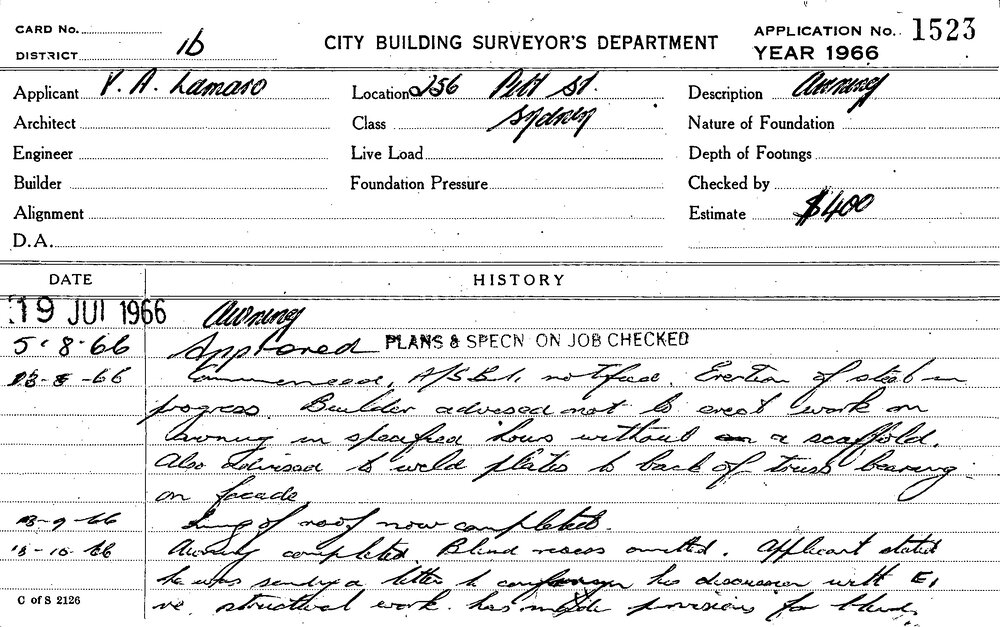 CARD No.
DISTRICT 1b
CITY BUILDING SURVEYOR'S DEPARTMENT
APPLICATION No. 1523
YEAR 1966
Applicant P. A. Lamaro
Location 256 Pitt St.
Description Awning
Architect
Class Sydney
Nature of Foundation
Engineer
Live Load
Depth of Footings
Builder
Foundation Pressure
Checked by
Alignment
Estimate $400
D.A.
DATE HISTORY
19 JUL 1966 Awning
5.8.66 Approved PLANS & SPECN ON JOB CHECKED
-8-66 Commenced, notified. Erection of steel in
progress. Builder advised not to erect work on
Awning in specified hours without a scaffold.
Also advised to weld plates to back of truss bearing
on facade.
-9-66 of roof now completed.
-10-66 Awning completed. Blind recess omitted. Applicant stated
he was sending a letter to his discussion with E.
re. structural work. has made provisions for blind.
C of S 2126